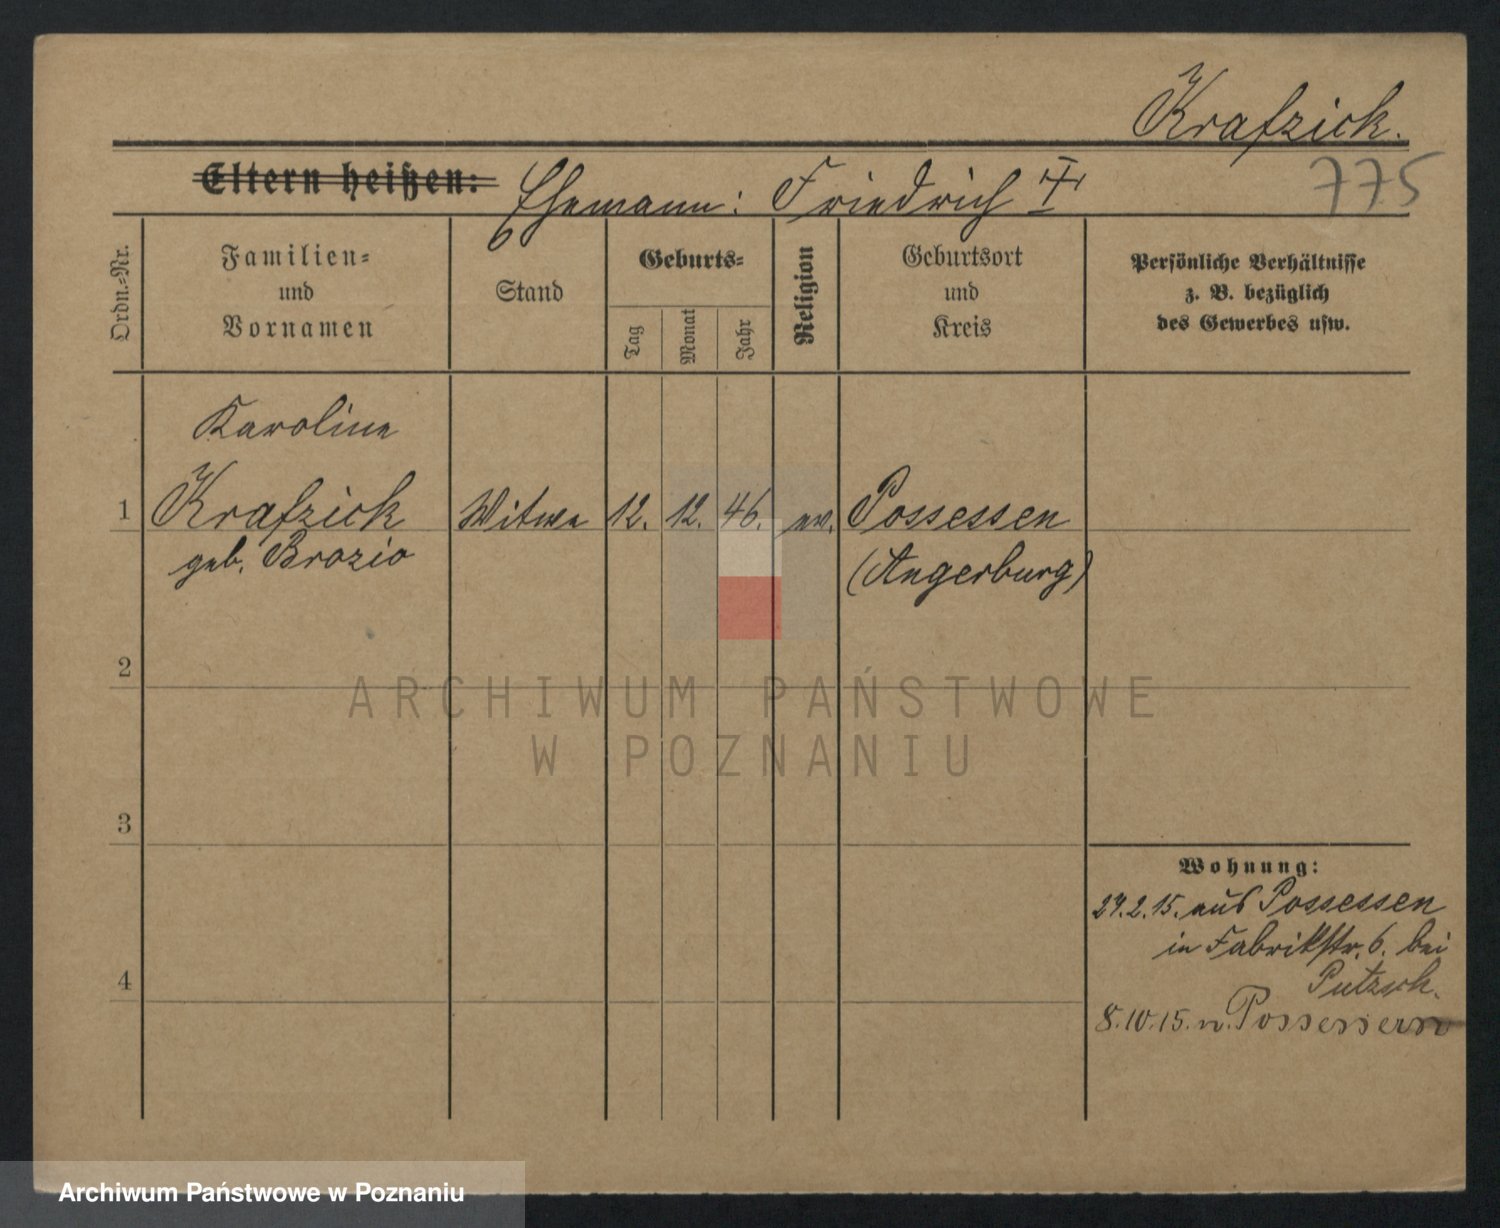 Krafzick.
775
Eltern heißen: Ehemann: Friedrich
Ordn.-Nr.
Familien-
und
Vornamen
Stand
Geburts-
Tag
Monat
Jahr
Religion
Geburtsort
und
Kreis
Persönliche Verhältnisse
z. B. bezüglich
des Gewerbes usw.
Karoline
1 Krafzick Witwe 12. 12. 46. ev. Possessen
geb. Brozio (Angerburg)
2
ARCHIWUM PAŃSTWOWE
W POZNANIU
3
Wohnung:
27.2.15. aus Possessen
in Fabrikstr. 6. bei
Putzsch.
4
8.10.15. n. Possessern
Archiwum Państwowe w Poznaniu